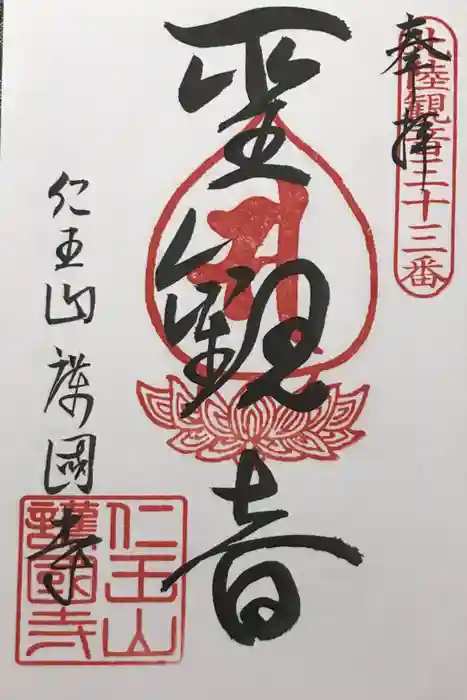 奉拝
北陸観音三十三番
聖観音
仁王山護國寺
仁王山
護國寺